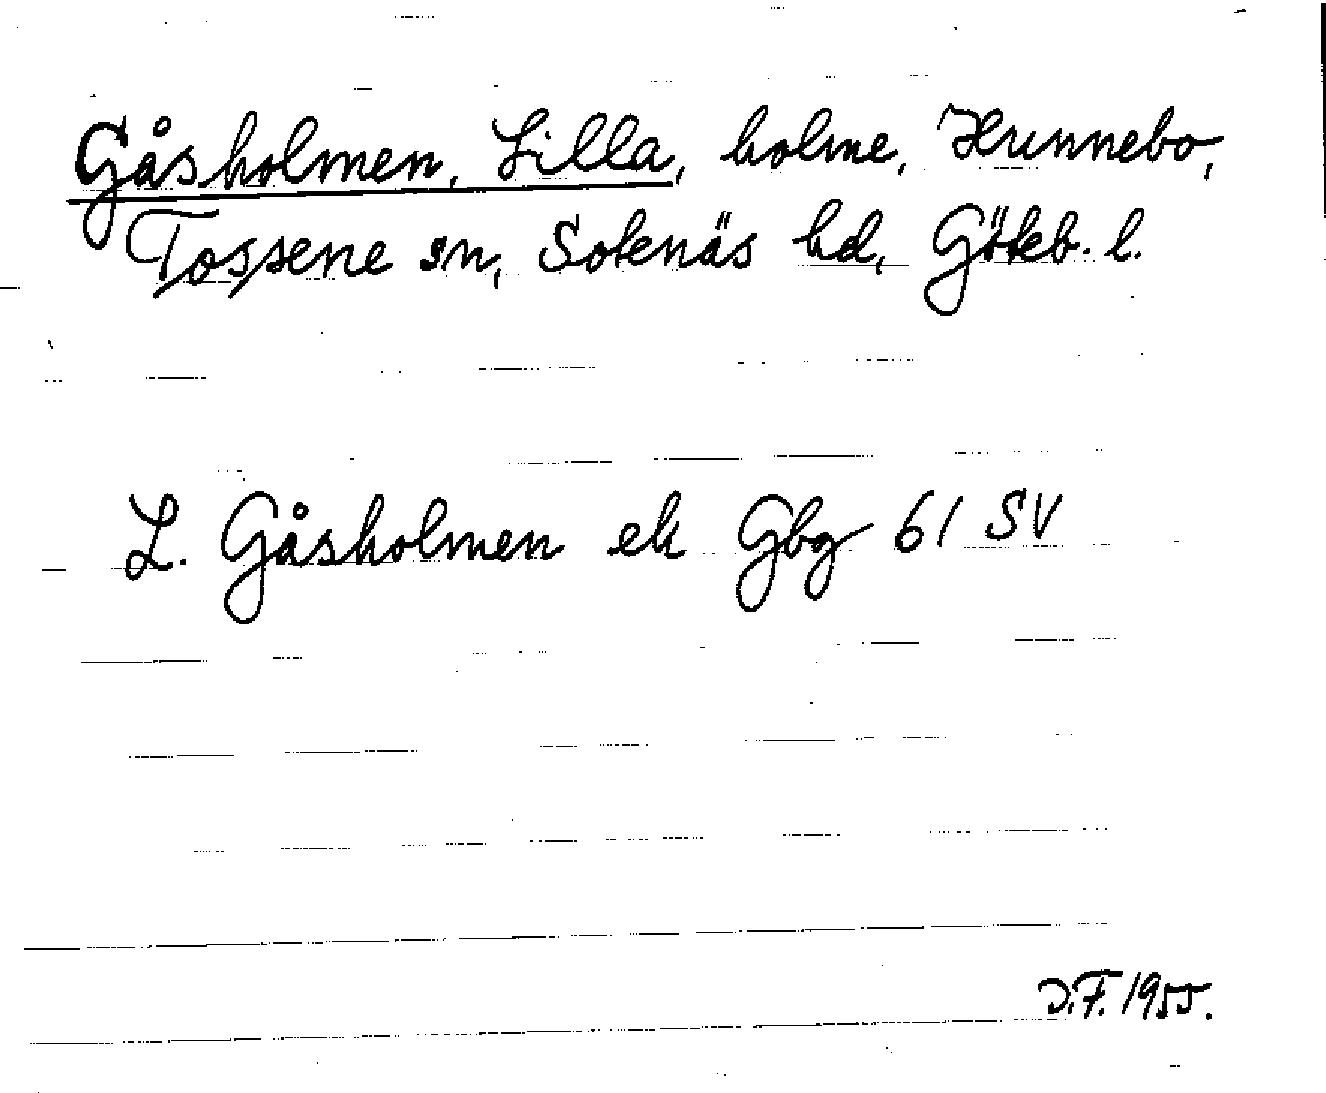 Gåsholmen, Lilla, holme, Hunnebo,
Tossene sn, Sotenäs hd, Göteb. l.
L. Gåsholmen ek Gbg 61 SV
D.F. 1955.